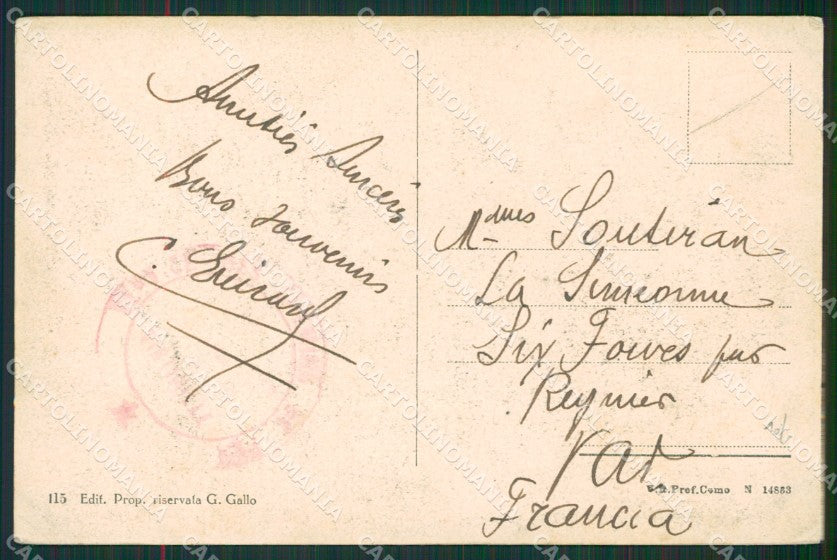 Amitiés Sincères
Bons Souvenirs
C.
Mdmes Soutiran
La Simeonne
Six Fours par
Reynier
Var
Francia
115 Edit. Prop. riservata G. Gallo
Pref. Como N 14853
CARTOLINOMANIA